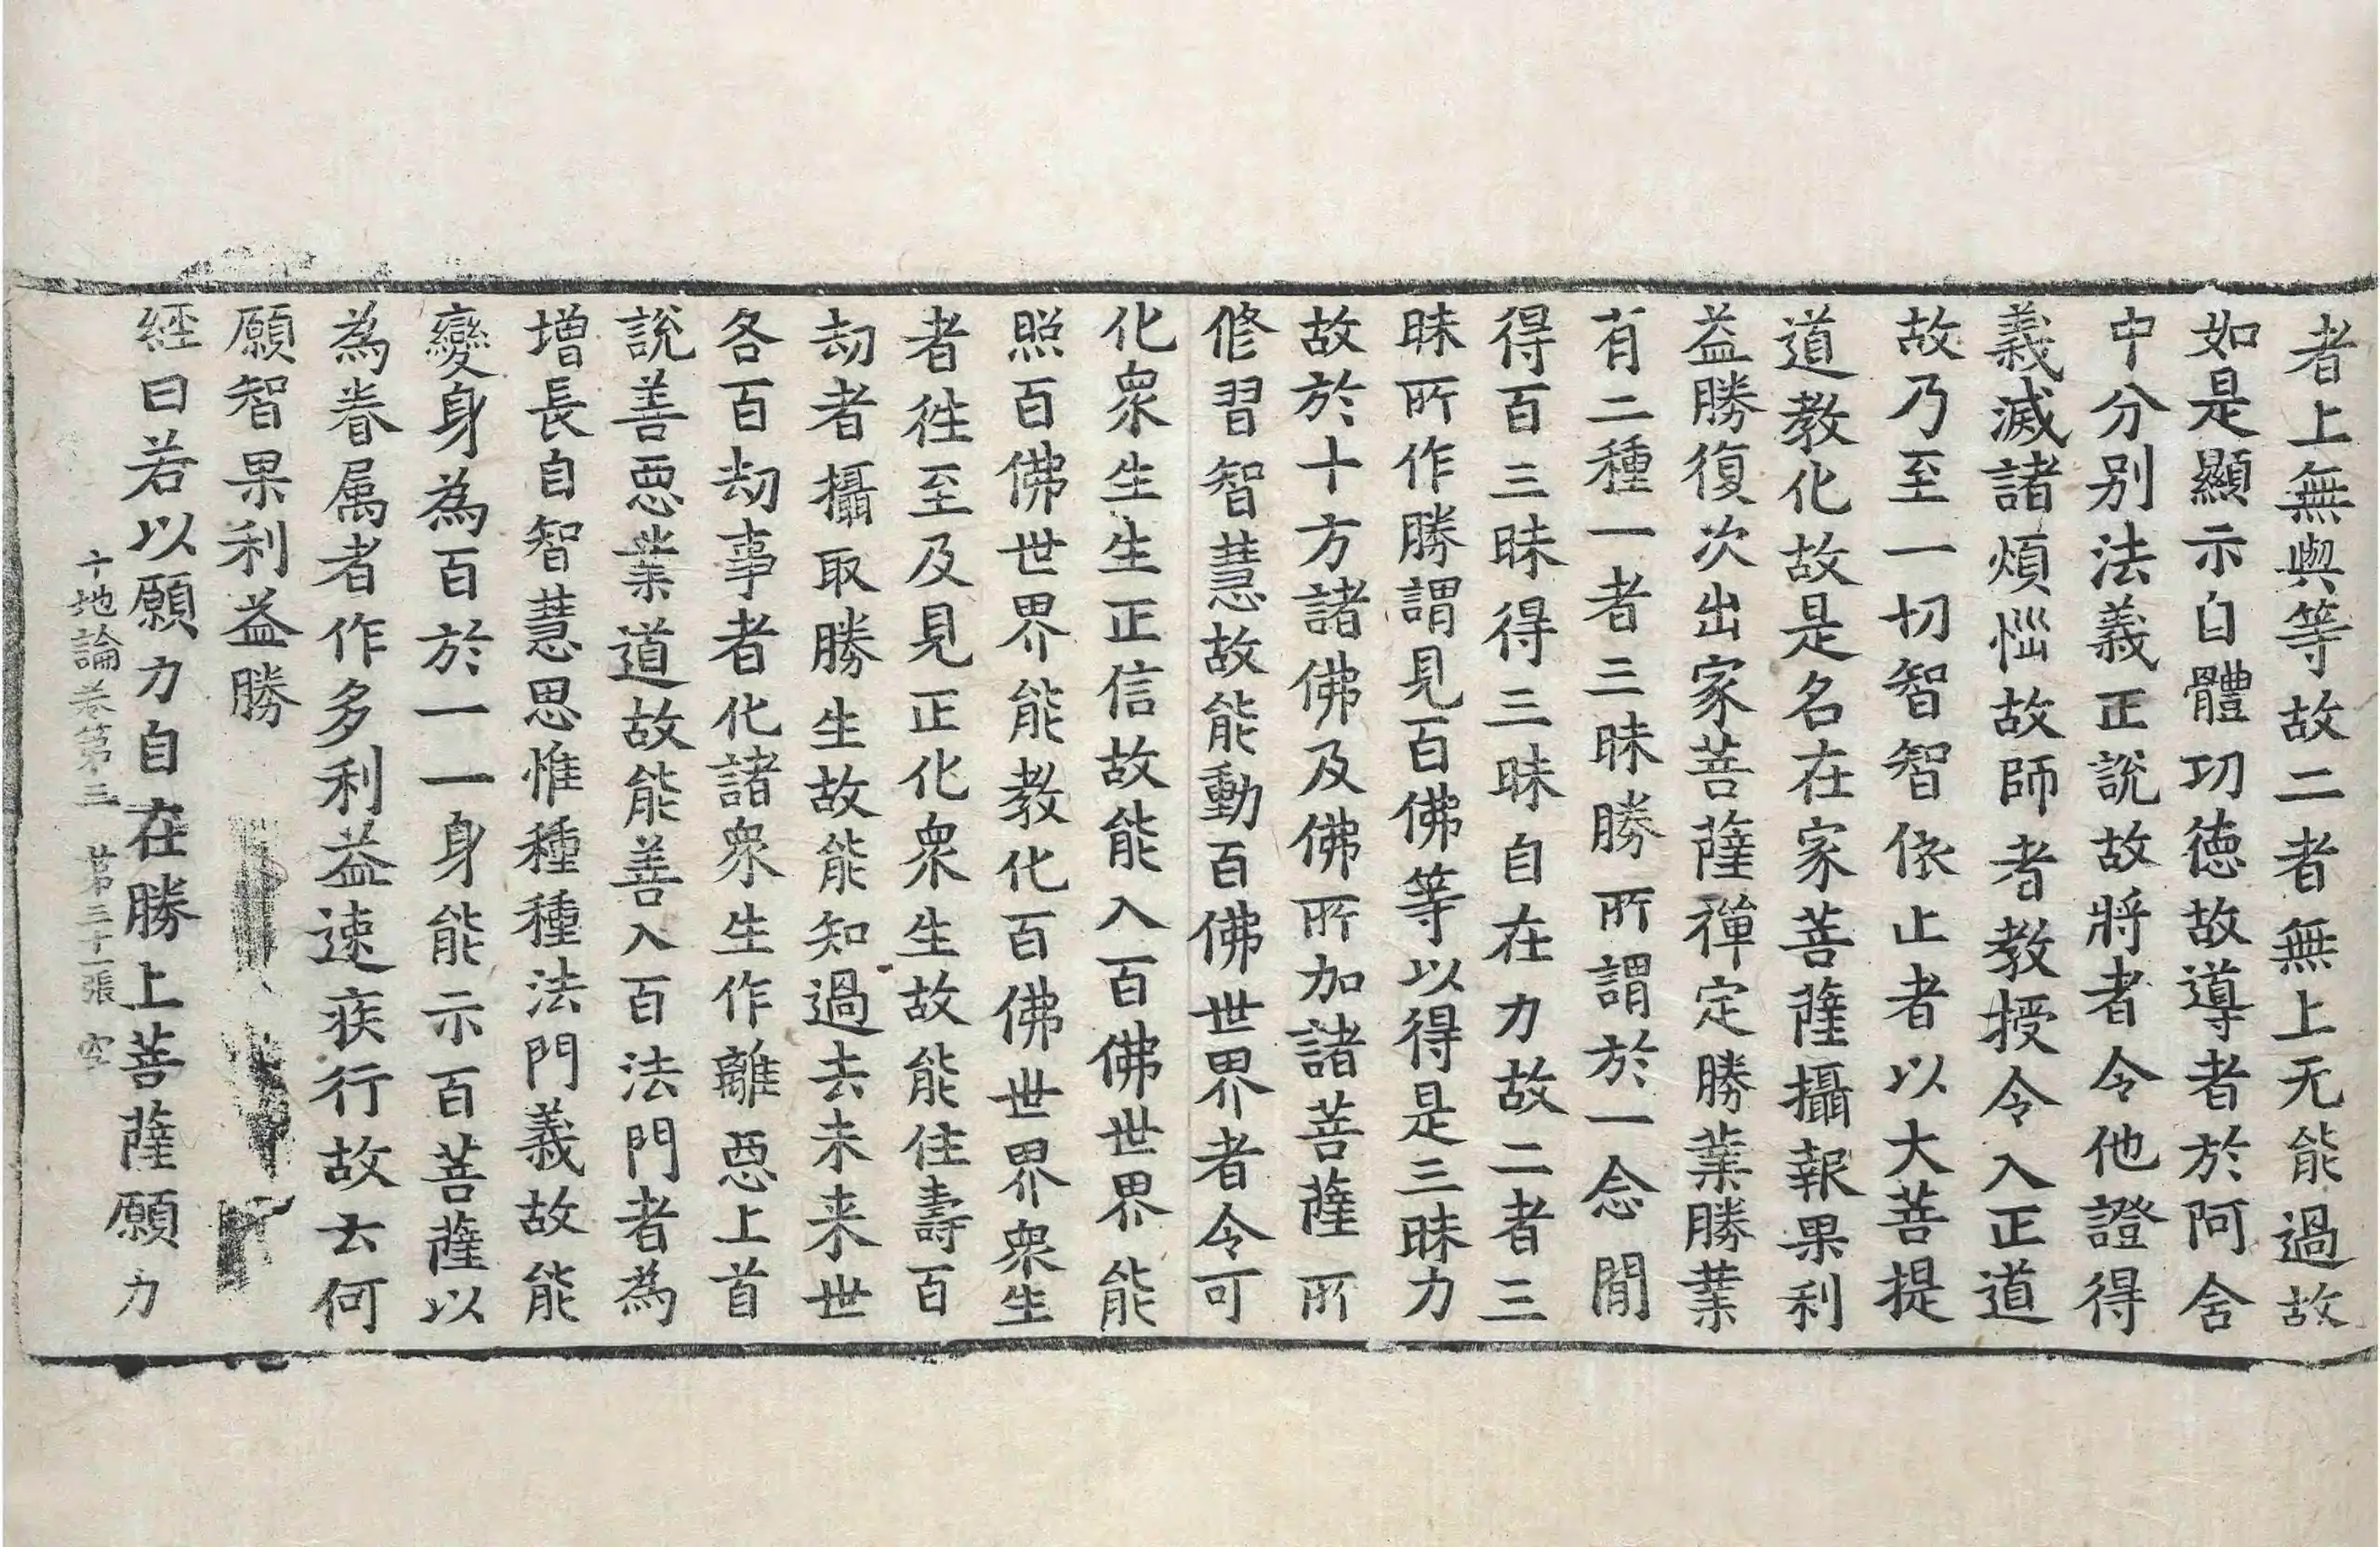 者上無與等故二者無上无能過故
如是顯示自體功德故導者於阿舍
中分别法義正說故將者令他證得
義滅諸煩惱故師者教授令入正道
故乃至一切智智依止者以大菩提
道教化故是名在家菩薩攝報果利
益勝復次出家菩薩禪定勝業勝業
有二種一者三昧勝所謂於一念閒
得百三昧得三昧自在力故二者三
昧所作勝謂見百佛等以得是三昧力
故於十方諸佛及佛所加諸菩薩所
修習智慧故能動百佛世界者令可
化衆生生正信故能入百佛世界能
照百佛世界能教化百佛世界衆生
者徃至及見正化衆生故能住壽百
劫者攝取勝生故能知過去未来世
各百劫事者化諸衆生作離惡上首
說善惡業道故能善入百法門者為
增長自智慧思惟種種法門義故能
變身為百於一一身能示百菩薩以
為眷属者作多利益速疾行故去何
願智果利益勝
經曰若以願力自在勝上菩薩願力
十地論卷第三 第三十一張 空